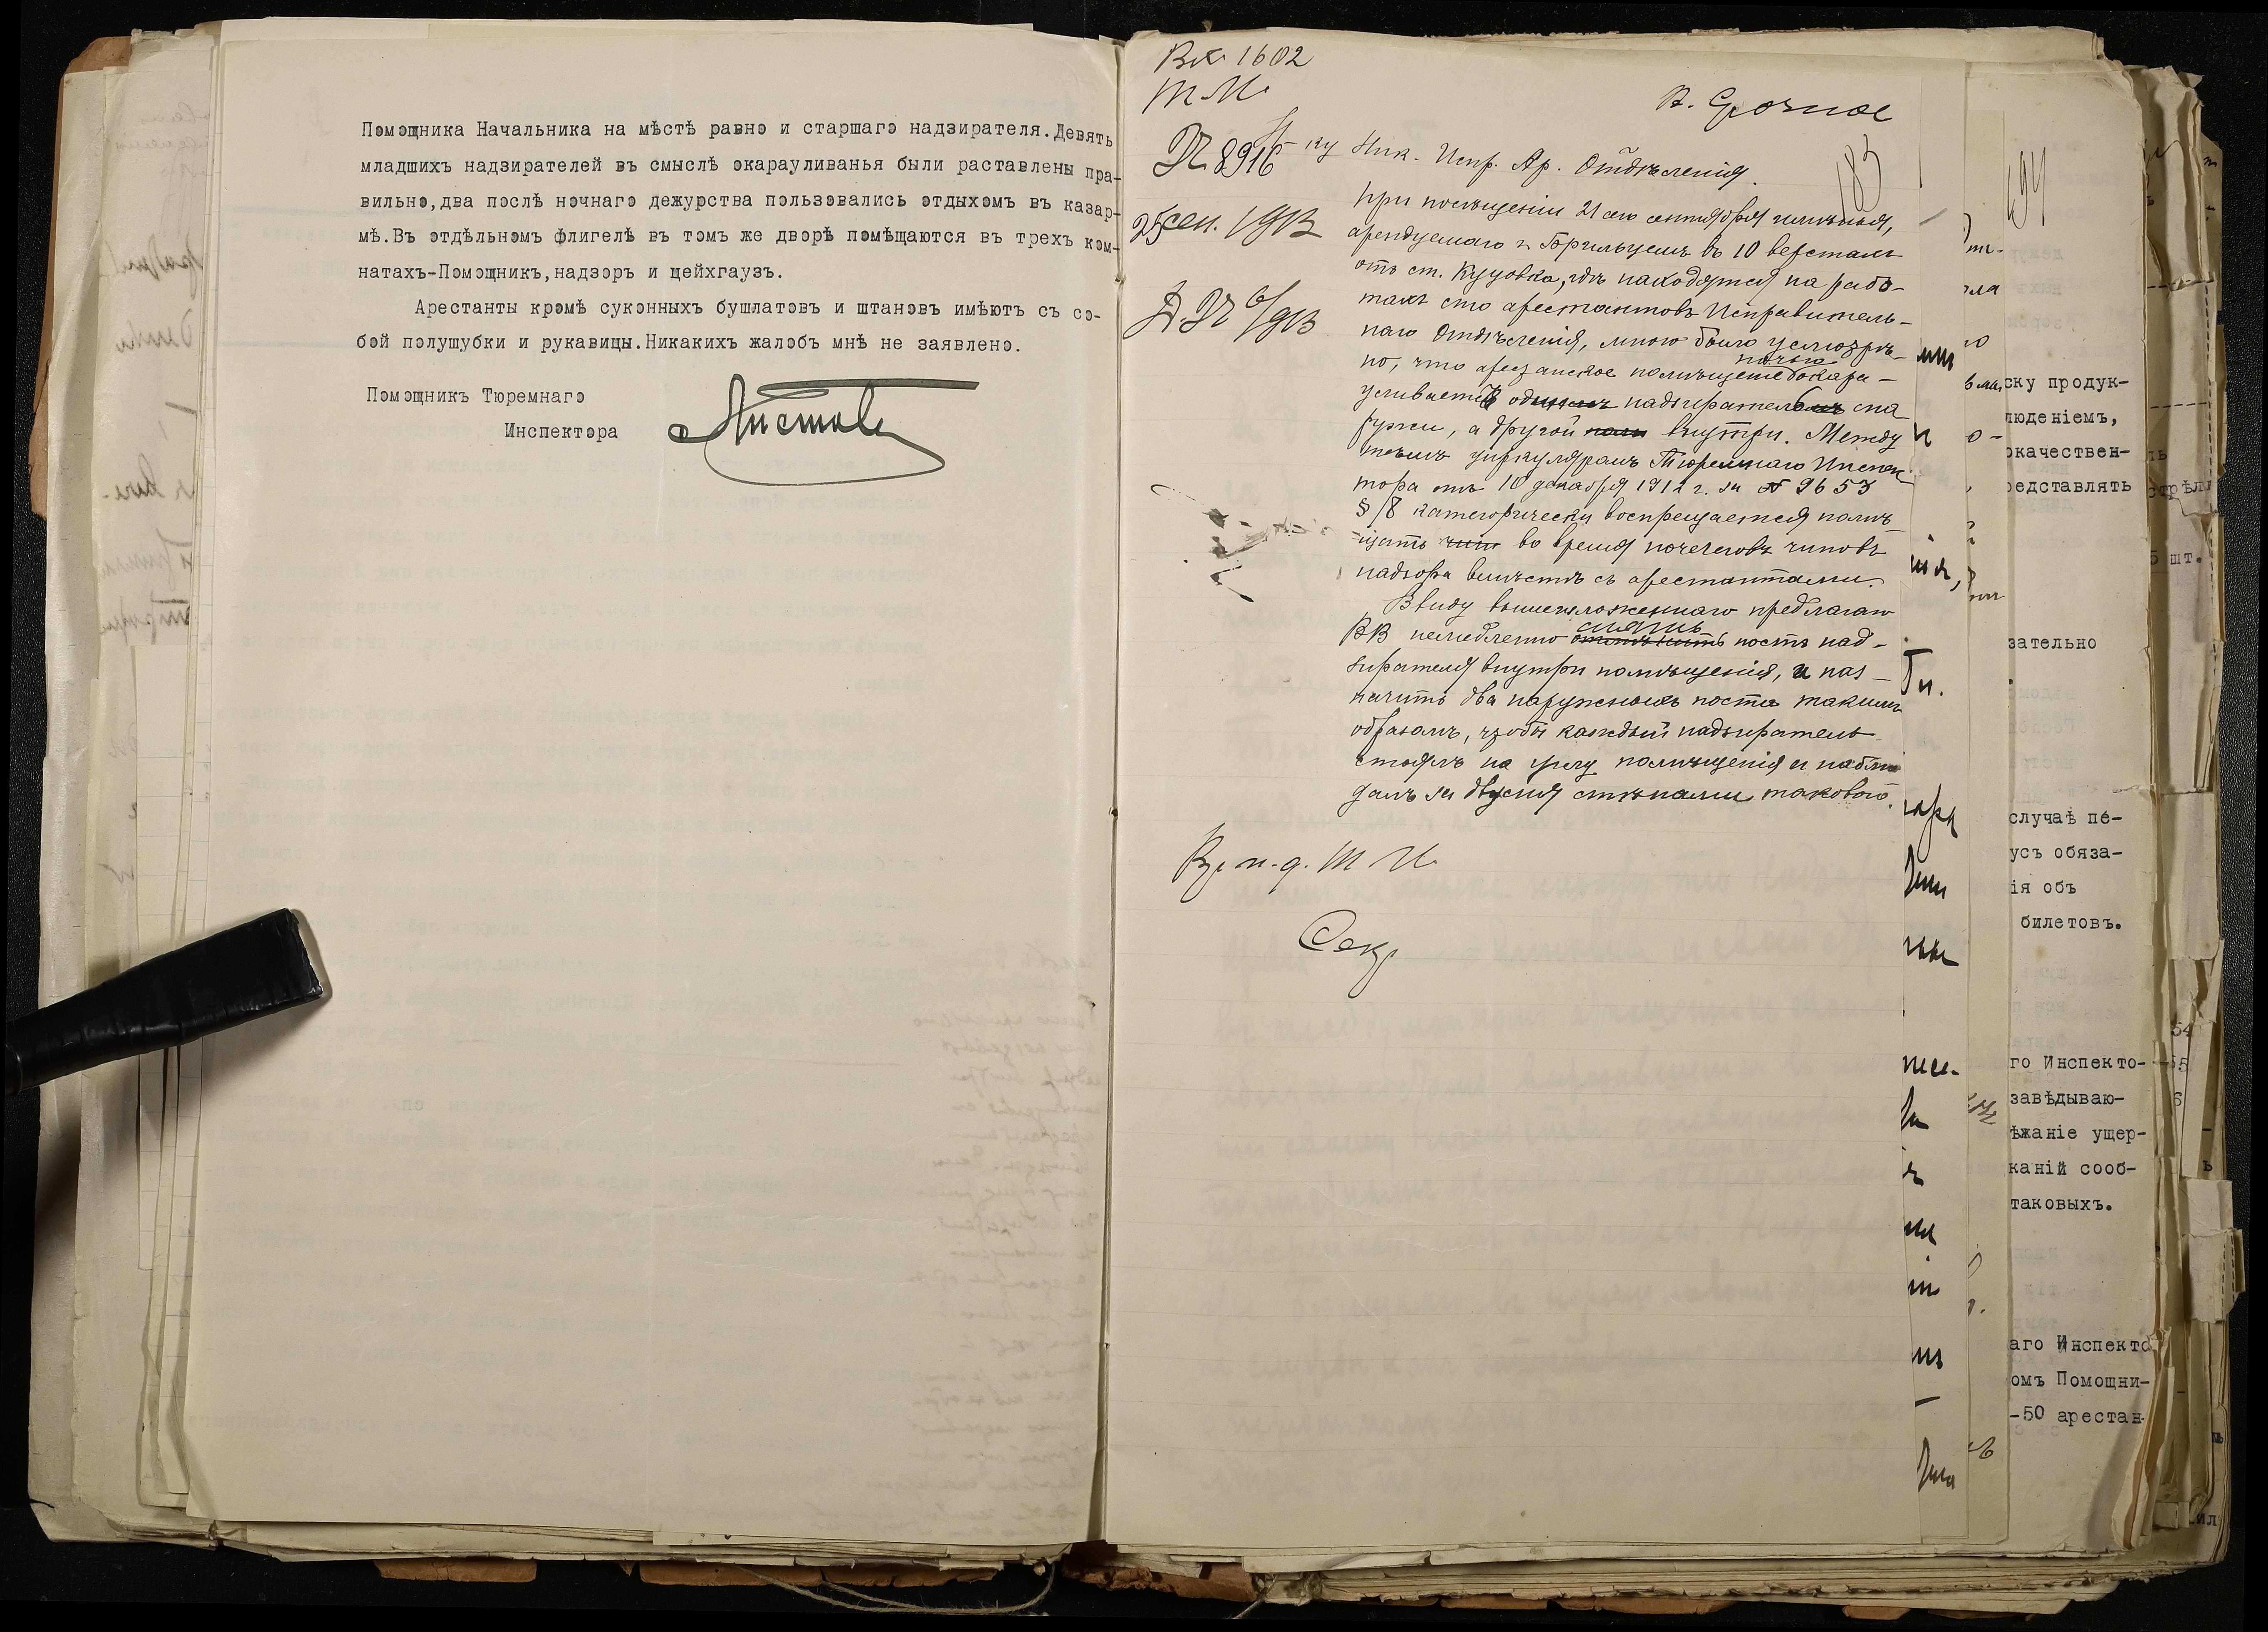 Помощника Начальника на мѣстѣ равно и старшаго надзирателя.Девять
младшихъ надзирателей въ смыслѣ окарауливанья были раставлены пра-
вильно,два послѣ ночнаго дежурства пользовались отдыхомъ въ казар-
мѣ.Въ отдѣльномъ флигелѣ въ томъ же дворѣ помѣщаются въ трехъ ком-
натахъ-Помощникъ,надзоръ и цейхгаузъ.
Арестанты кромѣ суконныхъ бушлатовъ и штановъ имѣютъ съ со-
бой полушубки и рукавицы.Никакихъ жалобъ мнѣ не заявлено.
Помощникъ Тюремнаго
Инспектора
1602
Т. И.
Срочное
№ 8916
183
Нпк. Испр. Ар. Отдѣленія.
25 сен. 1913
При посѣщеніи 21 сего сентября имѣнья,
арендуемаго въ 10 верстахъ
отъ ст. Куцовка, гдѣ находятся на рабо-
тахъ сто арестантовъ Исправитель-
наго Отдѣленія, мною было усмотрѣ-
но, что арестанское помѣщеніе ночью окара-
уливаетъ одинъ надзиратель сна
ружи, а другой внутри. Между
тѣмъ циркуляромъ Тюремнаго Инспек-
тора отъ 10 декабря 1912 г. за № 9653
§ 18 категорически воспрещается помѣ-
щать во время ночлеговъ чиновъ
надзора вмѣстѣ съ арестантами.
Ввиду вышеизложеннаго предлагаю
ВВ немедленно снять постъ над-
зирателя внутри помѣщенія, и наз-
начить два наружныхъ поста такимъ
образомъ, чтобы каждый надзиратель
стоялъ на углу помѣщенія и наблю
далъ за двумя стѣнами такового.
Вр. и. д. Т И.
Секр
194
ску продук-
люденіемъ,
окачествен-
редставлять
5 шт.
зательно
случаѣ пе-
усъ обяза-
ія объ
билетовъ.
го Инспекто-
завѣдываю-
ѣжаніе ущер-
каній сооб-
таковыхъ.
аго Инспекто
омъ Помощни-
-50 арестан-